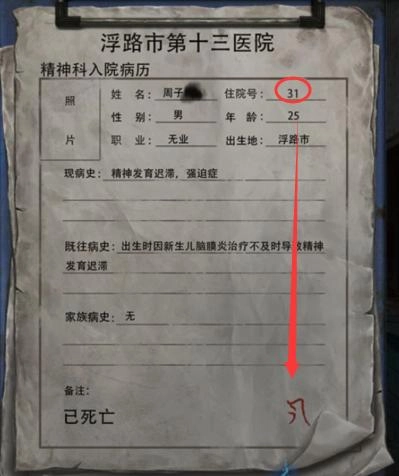 浮路市第十三医院
精神科入院病历
照片
姓 名: 周子 住院号: 31
性 别: 男 年 龄: 25
职 业: 无业 出生地: 浮路市
现病史: 精神发育迟滞，强迫症
既往病史: 出生时因新生儿脑膜炎治疗不及时导致精神
发育迟滞
家族病史: 无
备注:
已死亡